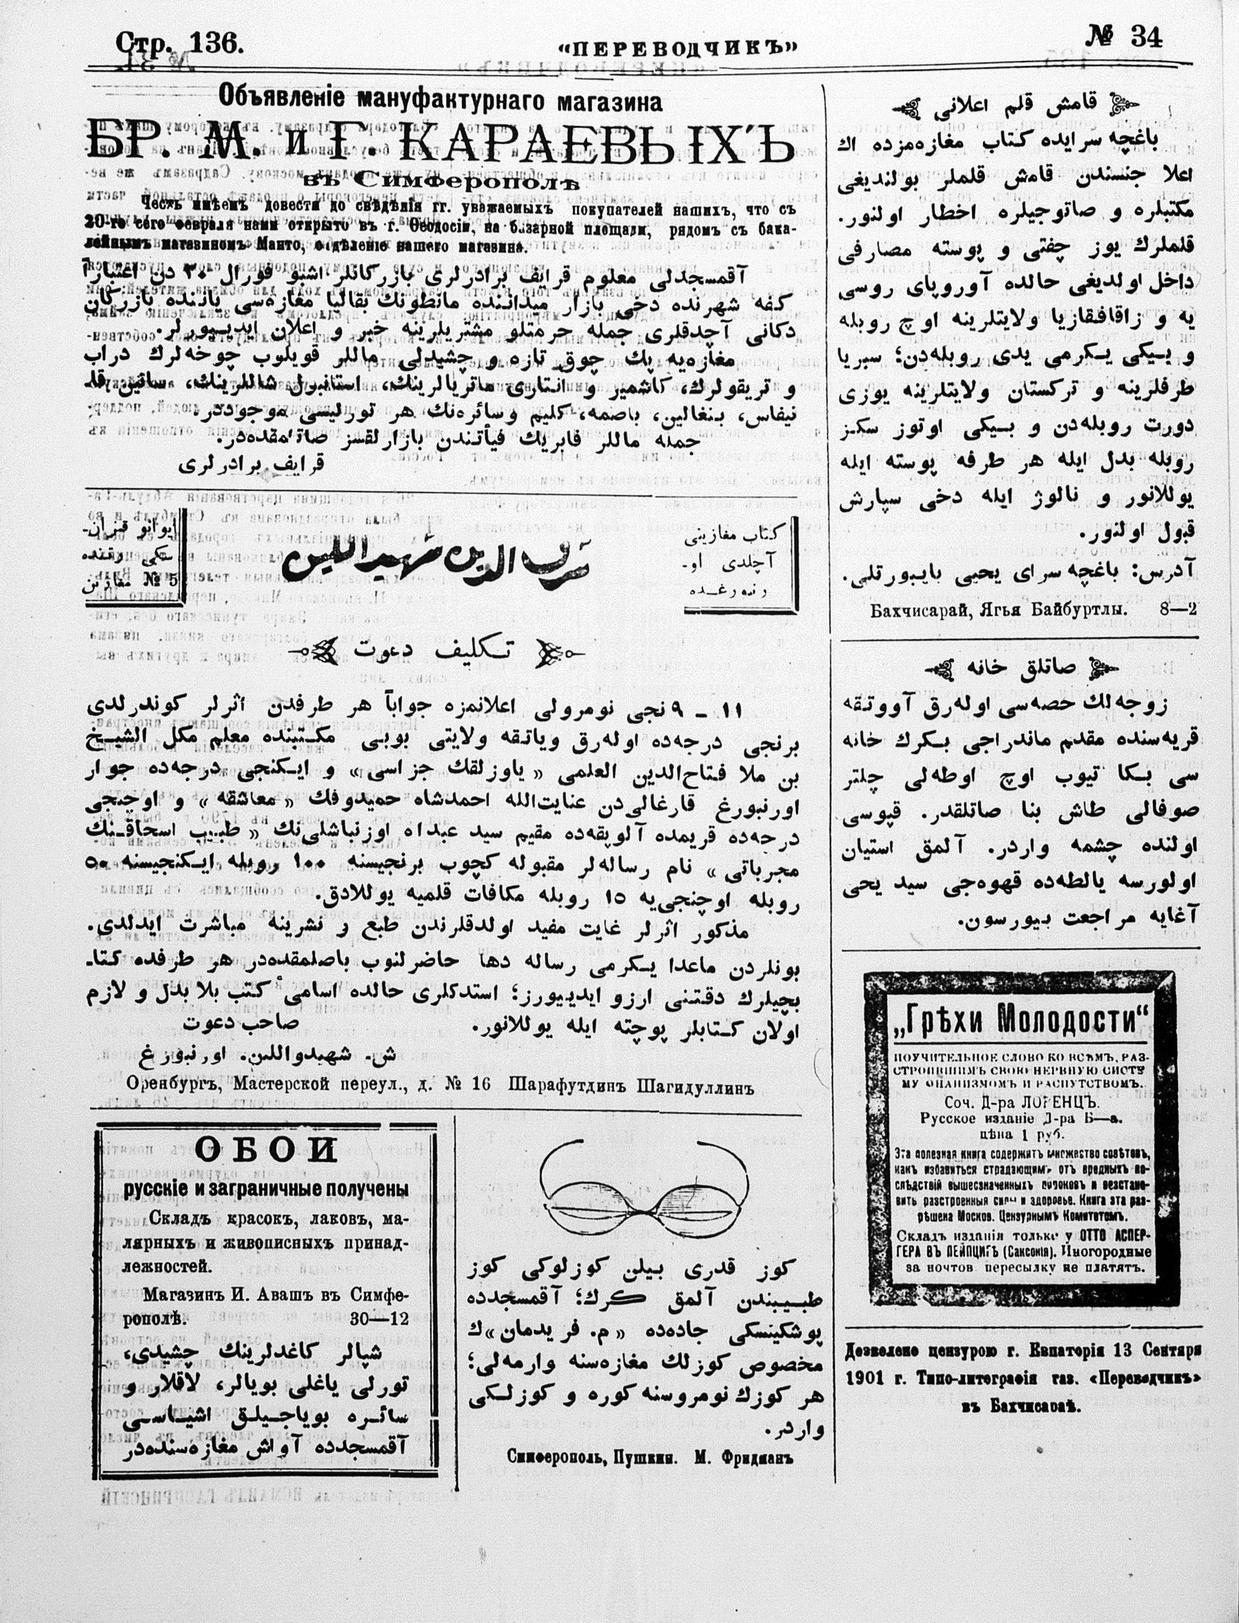 Стр. 136.
«ПЕРЕВОДЧИКЪ»
№ 34
Объявленіе мануфактурнаго магазина
БР. М. и Г. КАРАЕВЫХЪ
въ Симферополѣ
Честь имѣемъ довести до свѣдѣнія гг. уважаемыхъ покупателей нашихъ, что съ
20-го сего февраля нами открыто въ г. Ѳеодосіи, на базарной площади, рядомъ съ бака-
лейнымъ магазиномъ Манто, отдѣленіе нашего магазина.
آقمسجدلی معلوم قرایف برادرلری بازرگانلر اشبو فورال ۲۰ دن اعتباراً
کفه شهرنده دخی بازار میداننده مانطونك بقالیا مغازه‌سی یاننده بازرگان
دکانی آچدقلری جمله حرمتلو مشتریلرینه خبر و اعلان ایدیورلر.
مغازه‌یه پك چوق تازه و چشیدلی ماللر قویلوب چوخه‌لرك دراب
و تریقولرك، کاشمیر و انتاری ماتریالرینك، استانبول شاللرینك، ساتین قلـ
نیفاس، بنغالین، باصمه، کلیم وسائره‌نك هر تورلیسی موجوددر.
جمله ماللر فابریك فیأتندن بازارلقسز صاتلمقده‌در.
قرایف برادرلری
کتاب مغازینی
آچلدی او.
شرف الدین شهیداللین
№ 5 مغازن
تکلیف دعوت
۱۱ ـ ۹ نجی نومرولی اعلانمزه جواباً هر طرفدن اثرلر کوندرلدی
برنجی درجه‌ده اوله‌رق ویاتقه ولایتی بوبی مکتبنده معلم مکل الشیخ
بن ملا فتاح‌الدین العلمی « یاوزلقك جزاسی » و ایکنجی درجه‌ده جوار
اورنبورغ قارغالی‌دن عنایت‌الله احمدشاه حمیدوفك « معاشقه » و اوچنجی
درجه‌ده قریمده آلوپقه‌ده مقیم سید عبدالله اوزنباشلی‌نك « طبیب اسحاقنك
مجرباتی » نام رساله‌لر مقبوله کچوب برنجیسنه ۱۰۰ روبله ایکنجیسنه ۵۰
روبله اوچنجی‌یه ۱۵ روبله مکافات قلمیه یوللادق.
مذکور اثرلر غایت مفید اولدقلرندن طبع و نشرینه مباشرت ایدلدی.
بونلردن ماعدا یکرمی رساله دها حاضرلنوب باصلمقده‌در هر طرفده کتا-
بچیلرك دقتنی ارزو ایدییورز؛ استدکلری حالده اسامیء کتب بلا بدل و لازم
اولان کتابلر پوچته ایله یوللانور.
صاحب دعوت
ش. شهیدواللین. اورنبورغ
Оренбургъ, Мастерской переул., д. № 16 Шарафутдинъ Шагидуллинъ
ОБОИ
русскіе и заграничные получены
Складъ красокъ, лаковъ, ма-
лярныхъ и живописныхъ принад-
лежностей.
Магазинъ И. Авашъ въ Симфе-
рополѣ. 30—12
شپالر کاغدلرینك چشیدی،
تورلی یاغلی بویالر، لاقلار و
سائره بویاجیلق اشیاسی
آقمسجدده آواش مغازه‌سنده‌در
کوز قدری بیلن کوزلوکی کوز
طبیبندن آلمق کرك؛ آقمسجدده
پوشکینسکی جاده‌ده « م. فریدمان »ك
مخصوص کوزلك مغازه‌سنه وارمه‌لی؛
هر کوزك نومروسنه کوره و کوزلکی
واردر.
Симферополь, Пушкин. М. Фридманъ
قامش قلم اعلانی
باغچه سرایده کتاب مغازه‌مزده اك
اعلا جنسندن قامش قلملر بولندیغی
مکتبلره و صاتوجیلره اخطار اولنور.
قلملرك یوز چفتی و پوسته مصارفی
داخل اولدیغی حالده آوروپای روسی
یه و زاقافقازیا ولایتلرینه اوچ روبله
و بیکی یکرمی یدی روبله‌دن؛ سبریا
طرفلرینه و ترکستان ولایتلرینه یوزی
دورت روبله‌دن و بیکی اوتوز سکز
روبله بدل ایله هر طرفه پوسته ایله
یوللانور و نالوژ ایله دخی سپارش
قبول اولنور.
آدرس: باغچه سرای یحیی بایبورتلی.
Бахчисарай, Ягья Байбуртлы. 8—2
صاتلق خانه
زوجه‌لك حصه‌سی اوله‌رق آووتقه
قریه‌سنده مقدم ماندراجی بکرك خانه
سی بکا تیوب اوچ اوطه‌لی چلتر
صوفالی طاش بنا صاتلقدر. قپوسی
اولنده چشمه واردر. آلمق استیان
اولورسه یالطه‌ده قهوه‌جی سید یحی
آغایه مراجعت بیورسون.
„Грѣхи Молодости“
ПОУЧИТЕЛЬНОЕ СЛОВО КО ВСѢМЪ, РАЗ-
СТРОИВШИМЪ СВОЮ НЕРВНУЮ СИСТЕ
МУ ОНАНИЗМОМЪ И РАСПУТСТВОМЪ.
Соч. Д-ра ЛОРЕНЦЪ.
Русское изданіе Д-ра Б—а.
цѣна 1 руб.
Эта полезная книга содержитъ множество совѣтовъ,
какъ избавиться страдающимъ отъ вредныхъ по-
слѣдствій вышесзначенныхъ пороковъ и возстано-
вить разстроенныя силы и здоровье. Книга эта раз-
рѣшена Москов. Цензурнымъ Комитетомъ.
Складъ изданія только у ОТТО АСПЕР-
ГЕРА ВЪ ЛЕЙПЦИГѢ (Саксонія). Иногородные
за почтов. пересылку не платятъ.
Дозволено цензурою г. Евпаторія 13 Сентяря
1901 г. Типо-литографія газ. «Переводчикъ»
въ Бахчисараѣ.